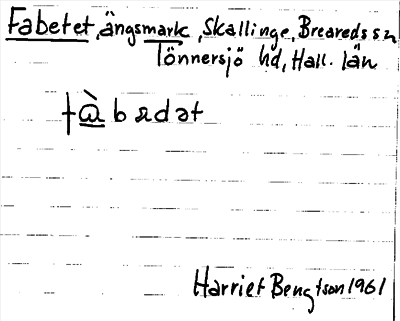 Fabetet, ängsmark, Skallinge, Breareds sn
Tönnersjö hd, Hall. län
fàbᴙdət
Harriet Bengtson 1961